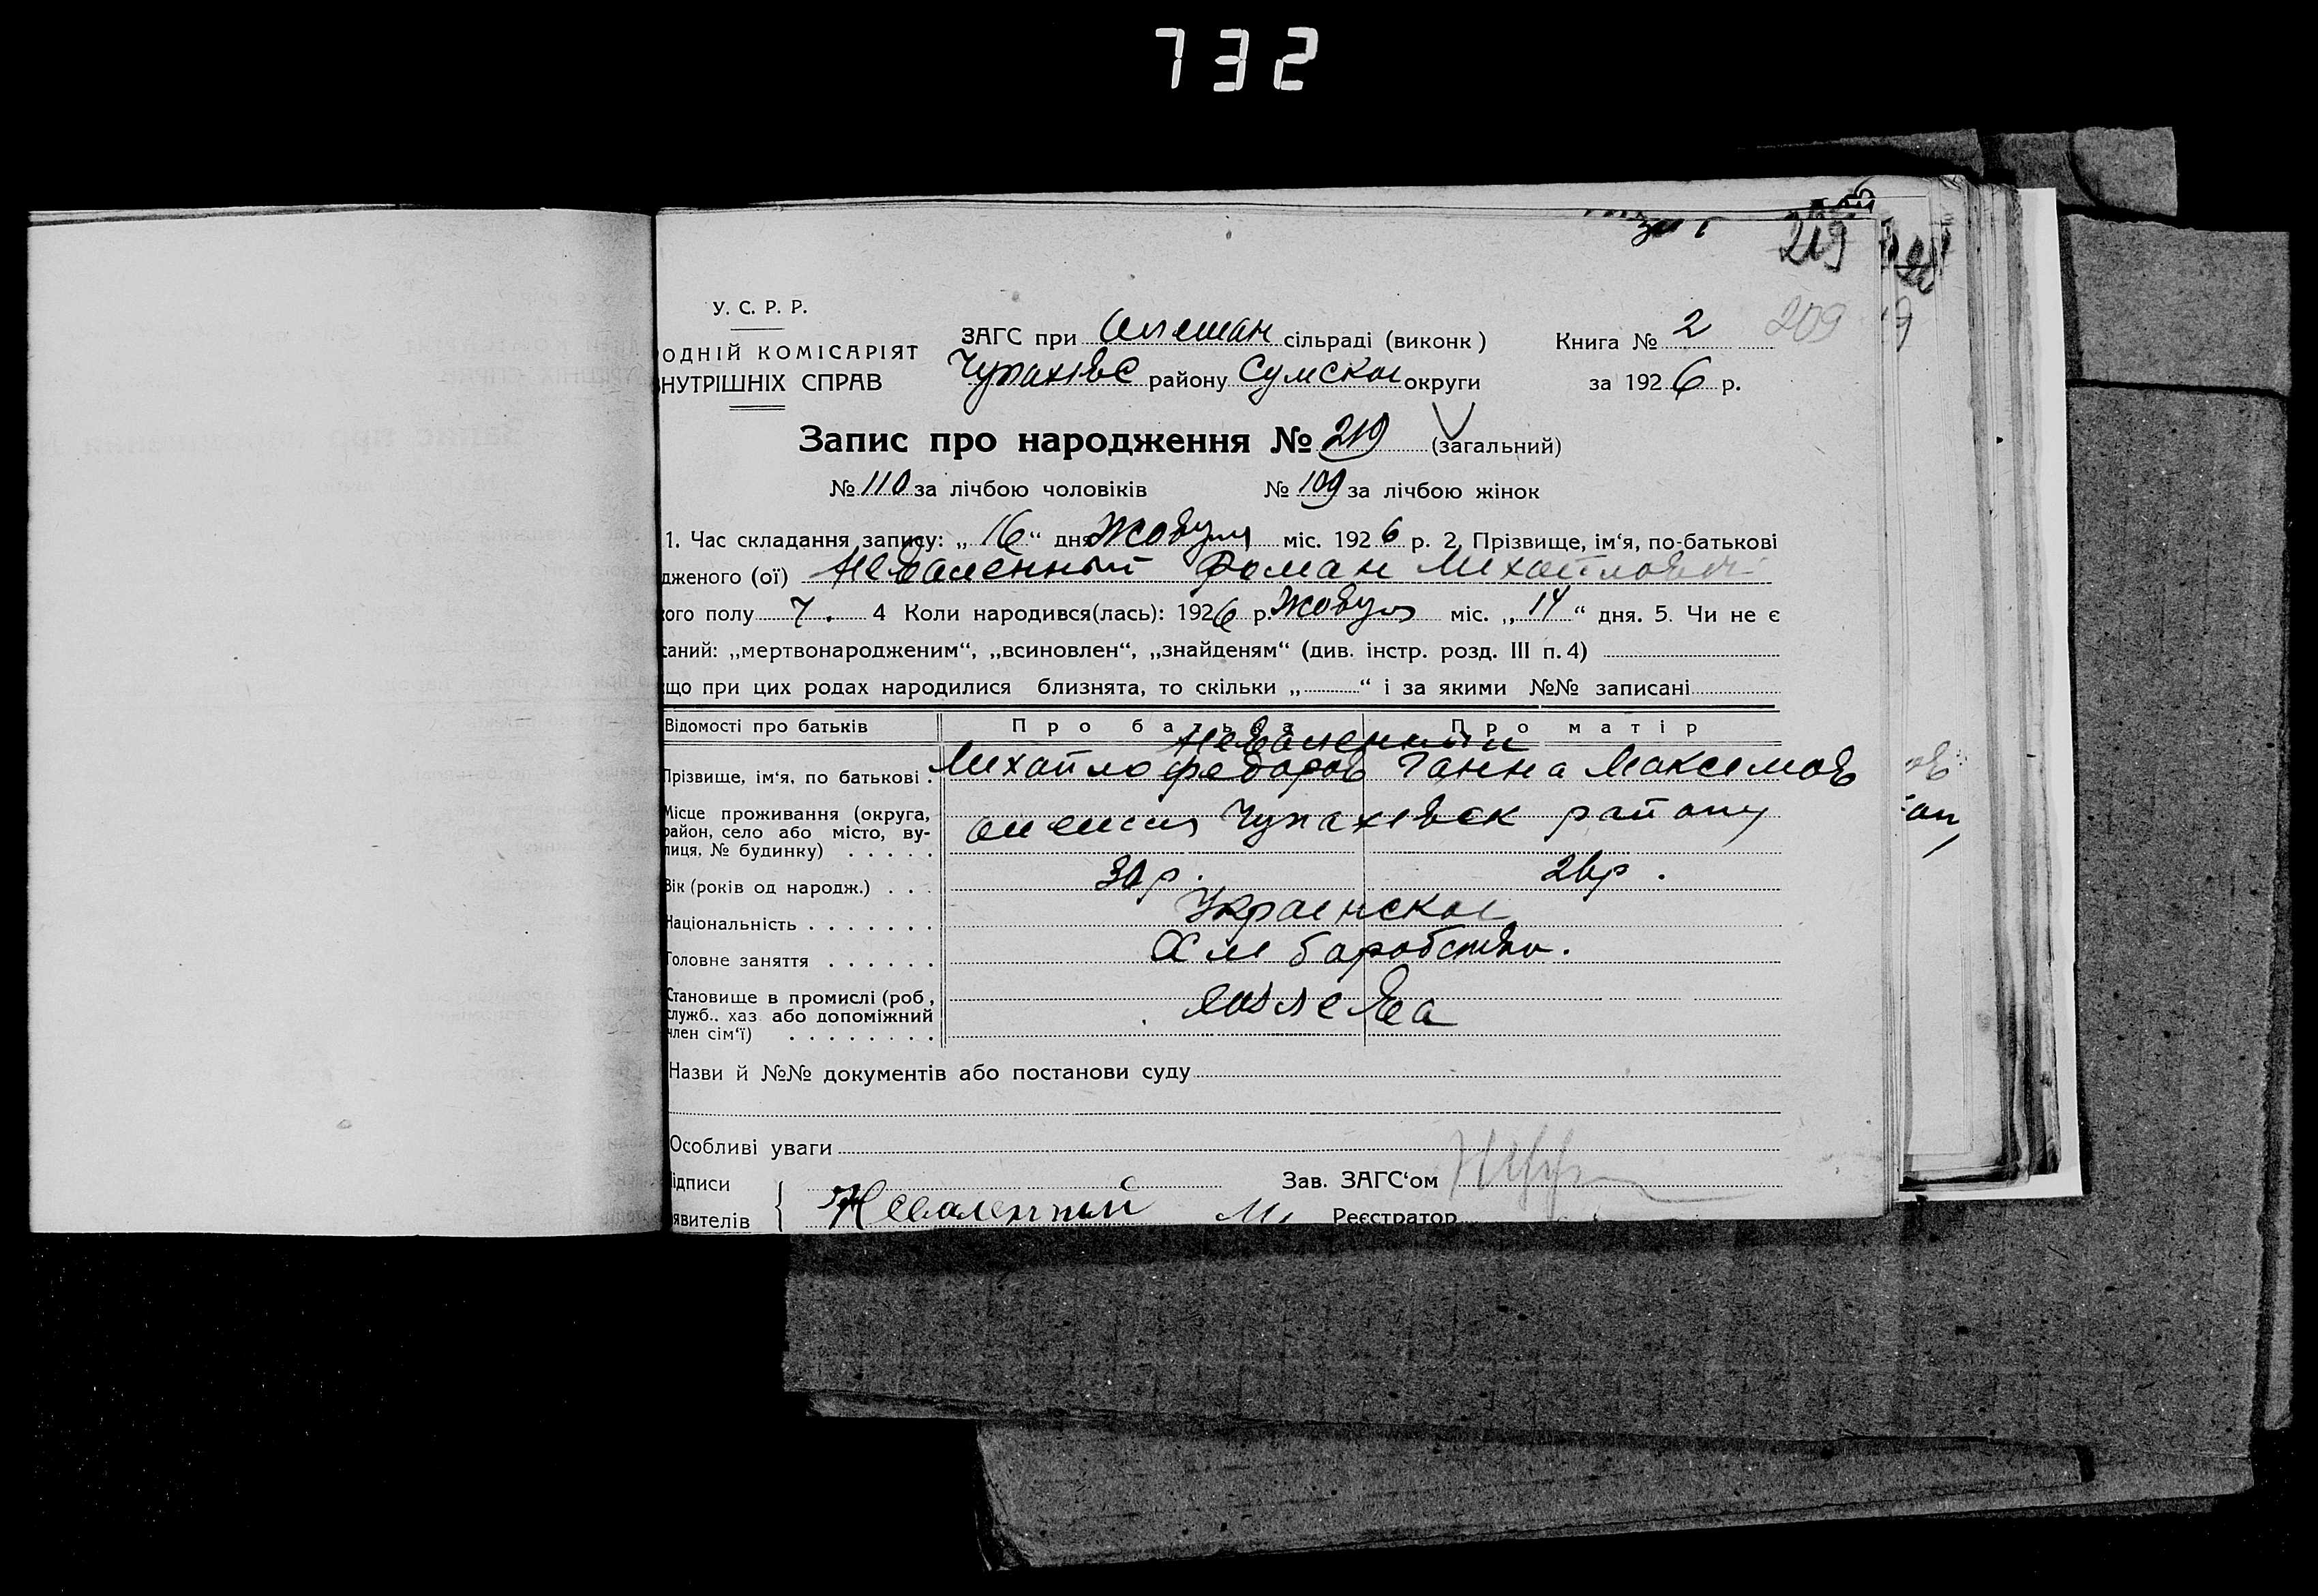 732
219
209
У. С. Р. Р.
ОДНІЙ КОМІСАРІЯТ
ВНУТРІШНІХ СПРАВ
ЗАГС при Олешан сільраді (виконк)
Чупахівс району Сумской округи
Книга № 2
за 1926 р.
Запис про народження № 219 (загальний)
№ 110 за лічбою чоловіків № 109 за лічбою жінок
1. Час складання запису: „16“ дня Жовтня міс. 1926 р. 2. Прізвище, ім‘я, по-батькові
дженого (ої) Неваленный Роман Михайлович
ого полу Ч. 4 Коли народився(лась): 1926 р. Жовтня міс. „14“ дня. 5. Чи не є
саний: „мертвонародженим“, „всиновлен“, „знайденям“ (див. інстр. розд. III п. 4)
що при цих родах народилися близнята, то скільки „ “ і за якими №№ записані
Відомості про батьків Про батька Про матір
Неваленный
Прізвище, ім‘я, по батькові . Михайло Федоров Ганна Максимов
Місце проживання (округа, район, село або місто, вулиця, № будинку) . . . . . Олешня Чупахівск району
Вік (років од народж.) . . . 30 р. 26 р.
Національність . . . . . . . Украинской
Головне заняття . . . . . . Хліборобство.
Становище в промислі (роб., служб., хаз або допоміжний член сім‘ї) . . . . . . . .
Назви й №№ документів або постанови суду
Особливі уваги
ідписи
явителів
Неваленный М
Зав. ЗАГС‘ом
Реєстратор